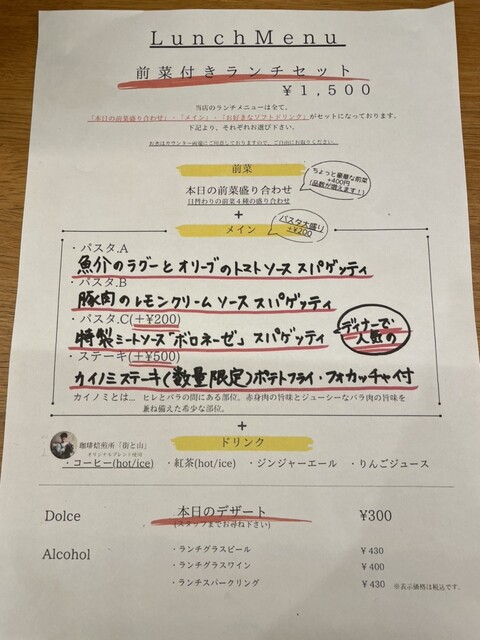 LunchMenu
前菜付きランチセット
￥1,500
当店のランチメニューは全て、
「本日の前菜盛り合わせ」・「メイン」・「お好きなソフトドリンク」がセットになっております。
下記より、それぞれお選び下さい。
お水はカウンター両端にご用意しておりますので、ご自由にお取りください。
前菜
ちょっと豪華な前菜
+400円
(品数が増えます！)
本日の前菜盛り合わせ
日替わりの前菜４種の盛り合わせ
+
メイン
パスタ大盛り
+¥200
・パスタ.A
魚介のラグーとオリーブのトマトソーススパゲッティ
・パスタ.B
豚肉のレモンクリームソーススパゲッティ
・パスタ.C(+¥200)
特製ミートソース「ボロネーゼ」スパゲッティ
ディナーで
人気の
・ステーキ(+¥500)
カイノミステーキ(数量限定)ポテトフライ・フォカッチャ付
カイノミとは… ヒレとバラの間にある部位。赤身肉の旨味とジューシーなバラ肉の旨味を
兼ね備えた希少な部位。
+
ドリンク
珈琲焙煎所「街と山」
オリジナルブレンド使用
・コーヒー(hot/ice) ・紅茶(hot/ice) ・ジンジャーエール ・りんごジュース
Dolce 本日のデザート ¥300
(スタッフまでお尋ね下さい)
Alcohol ・ランチグラスビール ￥430
・ランチグラスワイン ￥400
・ランチスパークリング ￥430 ※表示価格は税込です。